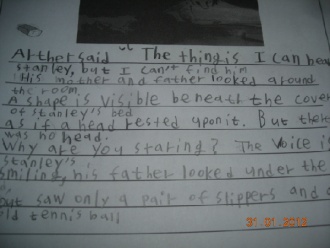 Arther said "The thing is I can hear
stanley, but I can't find him
His mother and father looked around
the room.
A shape is visible beneath the cover
of stanley's bed
as if a head rested upon it. But there
was no head.
Why are you staring? The voice is
stanley's.
smiling, his father looked under the
but saw only a pair of slippers and a
old tennis ball
31 01 2013